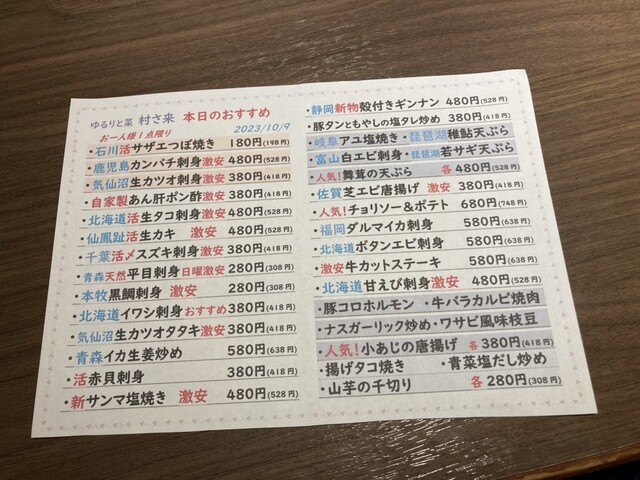 ゆるりと菜 村さ来 本日のおすすめ
お一人様1点限り 2023/10/9
・石川活サザエつぼ焼き 180円(198円)
・鹿児島カンパチ刺身激安 480円(528円)
・気仙沼生カツオ刺身激安 380円(418円)
・自家製あん肝ポン酢激安 380円(418円)
・北海道活生タコ刺身激安 480円(528円)
・仙鳳趾生カキ 激安 480円(528円)
・千葉活〆スズキ刺身激安 380円(418円)
・青森天然平目刺身日曜激安 280円(308円)
・本牧黒鯛刺身 激安 280円(308円)
・北海道イワシ刺身おすすめ 380円(418円)
・気仙沼生カツオタタキ激安 380円(418円)
・青森イカ生姜炒め 580円(638円)
・活赤貝刺身 380円(418円)
・新サンマ塩焼き 激安 480円(528円)
・静岡新物殻付きギンナン 480円(528円)
・豚タンともやしの塩タレ炒め 380円(418円)
・岐阜アユ塩焼き・琵琶湖稚鮎天ぷら
・富山白エビ刺身・琵琶湖若サギ天ぷら
・人気!舞茸の天ぷら 各480円(528円)
・佐賀芝エビ唐揚げ 激安 380円(418円)
・人気!チョリソー&ポテト 680円(748円)
・福岡ダルマイカ刺身 580円(638円)
・北海道ボタンエビ刺身 580円(638円)
・激安牛カットステーキ 580円(638円)
・北海道甘えび刺身激安 480円(528円)
・豚コロホルモン ・牛バラカルビ焼肉
・ナスガーリック炒め・ワサビ風味枝豆
・人気!小あじの唐揚げ 各380円(418円)
・揚げタコ焼き ・青菜塩だし炒め
・山芋の千切り 各280円(308円)